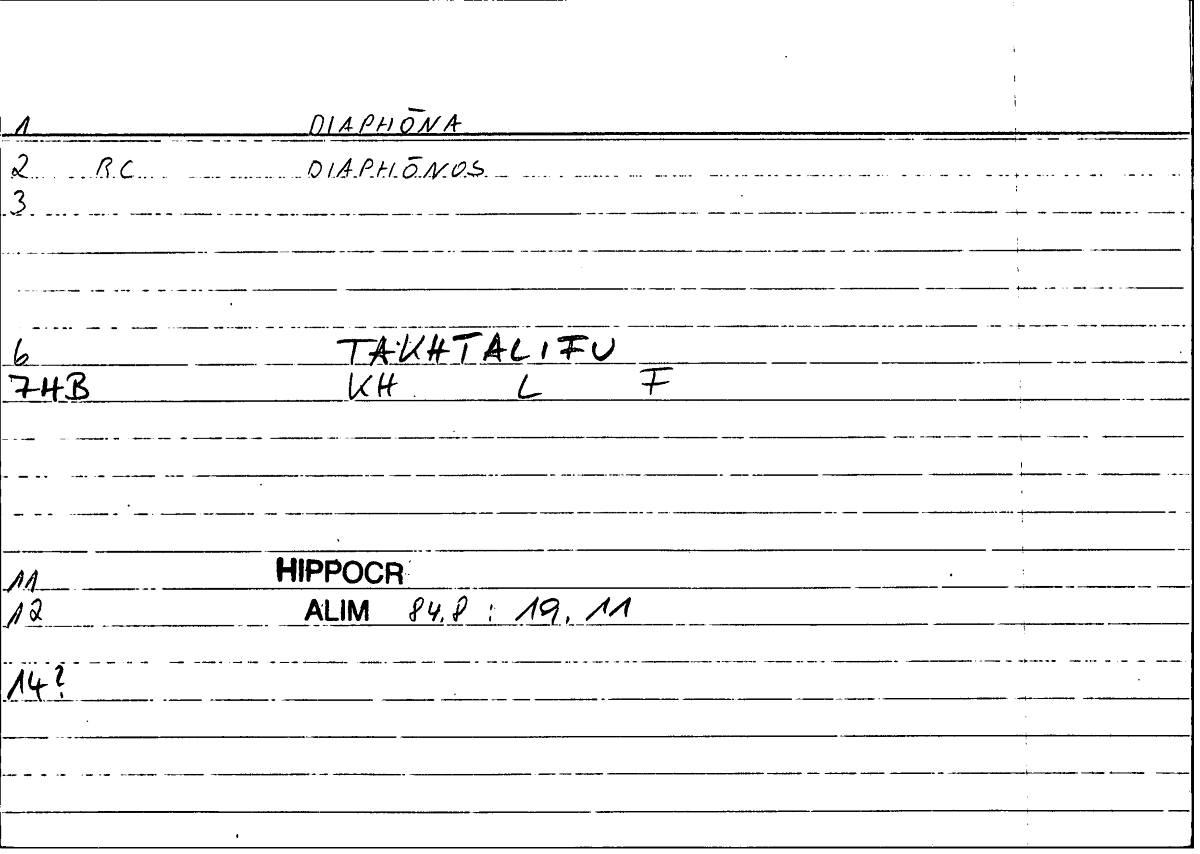 1 DIAPHŌNA
2 RC DIAPHŌNOS
3
6 TAKHTALIFU
7HB KH L F
11 HIPPOCR
12 ALIM 84,8 : 19, 11
14?